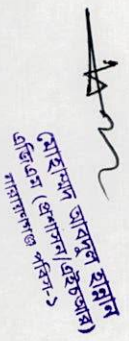 মোহাম্মদ আবদুল হান্নান
এজিএম (প্রশাসন/এইচআর)
নারায়ণগঞ্জ পবিস-১